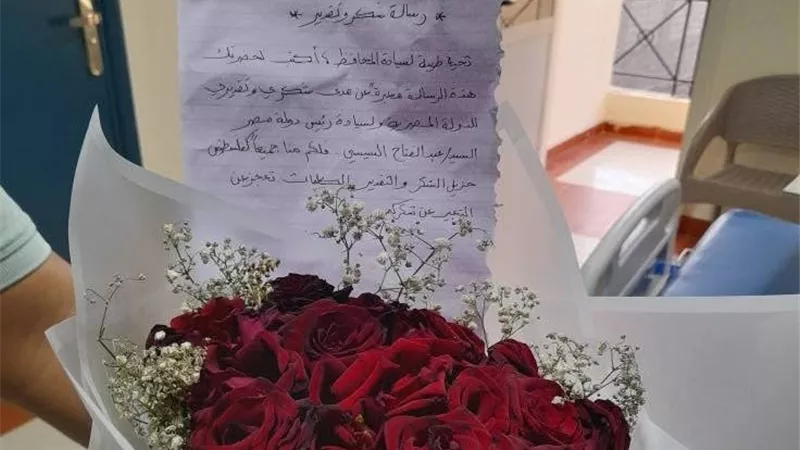 * رسالة شكر وتقدير *
تحية طيبة لسيادة المحافظ ، أكتب لحضرتك
هذه الرسالة معبرة عن مدى شكري وتقديري
للدولة المصرية ولسيادة رئيس دولة مصر
السيد/عبد الفتاح السيسي . فلكم منا جميعاً كفلسطينين
جزيل الشكر والتقدير فالكلمات تعجز عن
التعبير عن شكركم